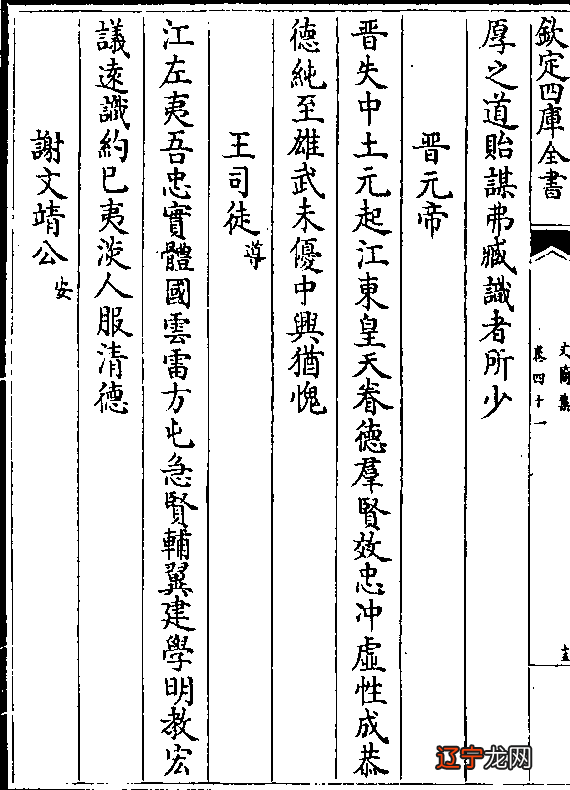 欽定四庫全書
卷四十一
厚之道貽謀弗臧識者所少
晋元帝
晋失中土元起江東皇天眷德羣賢效忠冲虛性成恭
德純至雄武未優中興猶愧
王司徒導
江左夷吾忠實體國雲雷方屯急賢輔翼建學明教宏
議遠識約已夷淡人服清德
謝文靖公安
辽宁龙网